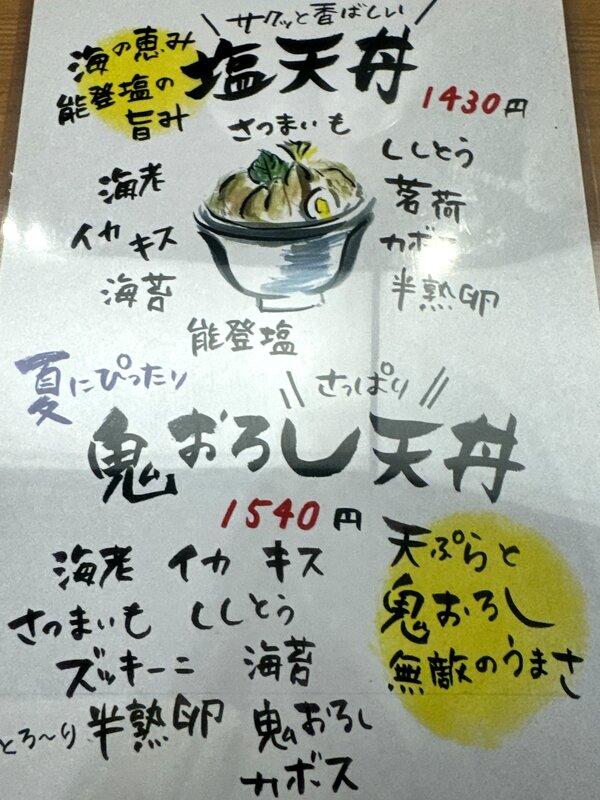 サクッと香ばしい
海の恵み
能登塩の
旨み
塩天丼
1430円
さつまいも
海老
イカ キス
海苔
ししとう
茗荷
カボ
半熟卵
能登塩
夏にぴったり
さっぱり
鬼おろし天丼
1540円
海老 イカ キス
さつまいも ししとう
ズッキーニ 海苔
とろ〜り 半熟卵 鬼おろし
カボス
天ぷらと
鬼おろし
無敵のうまさ